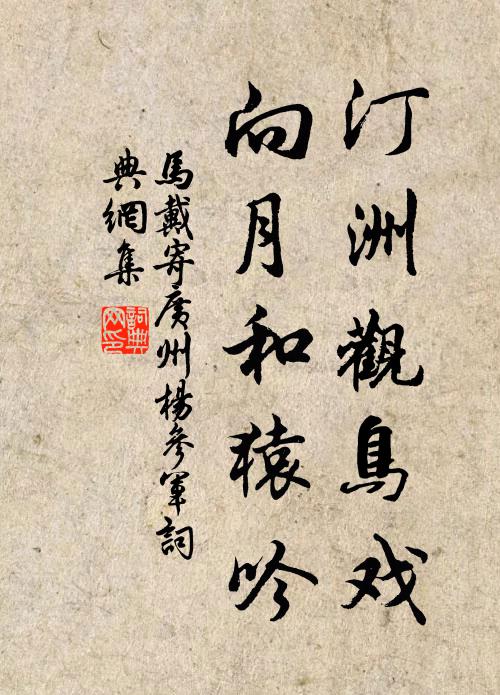 汀洲觀鳥戏
向月和猿吟
馬戴寄廣州楊參軍詞
典網集
詞典网印